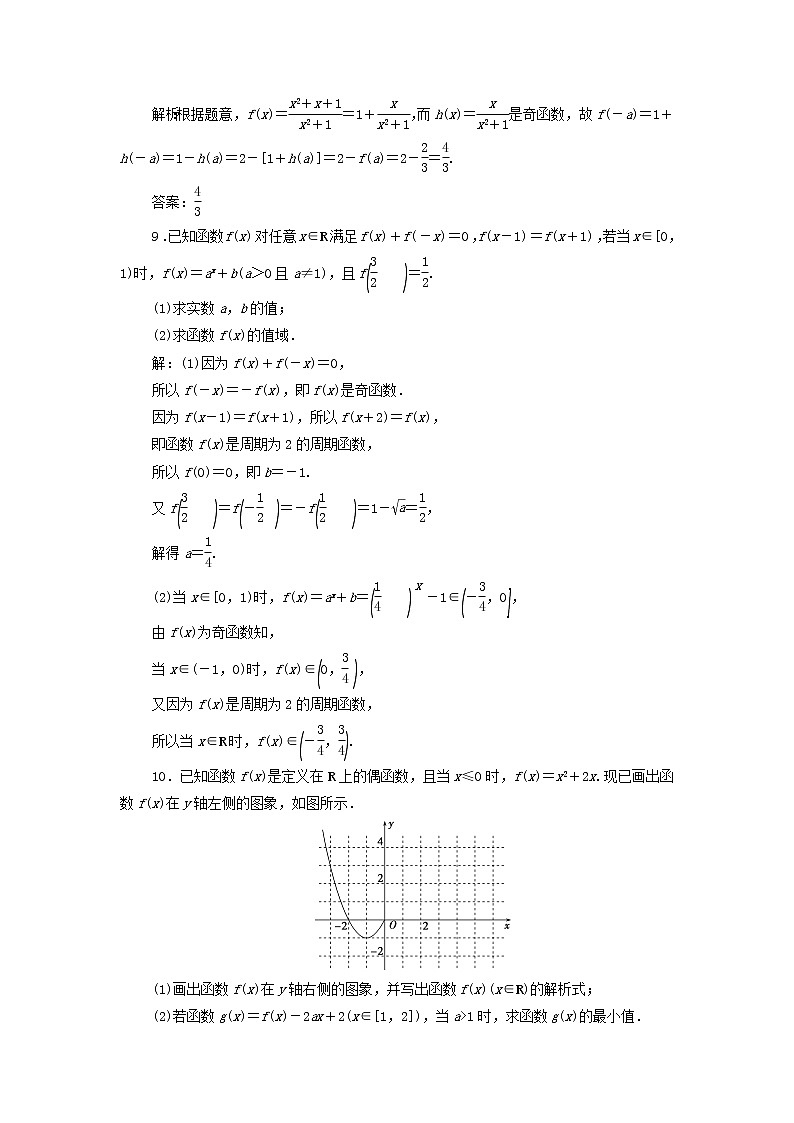 解析:根据题意，f(x)＝\frac{x²＋x＋1}{x²＋1}＝1＋\frac{x}{x²＋1},而 h(x)＝\frac{x}{x²＋1}是奇函数，故 f(－a)＝1＋
h(－a)＝1－h(a)＝2－[1＋h(a)]＝2－f(a)＝2－\frac{2}{3}＝\frac{4}{3}.
答案：\frac{4}{3}
9.已知函数f(x)对任意x∈R满足f(x)＋f(－x)＝0,f(x－1)＝f(x＋1),若当x∈[0,
1)时,f(x)＝aˣ＋b(a＞0且 a≠1),且f(\frac{3}{2})＝\frac{1}{2}.
(1)求实数 a，b 的值；
(2)求函数 f(x)的值域.
解：(1)因为 f(x)＋f(－x)＝0,
所以 f(－x)＝－f(x),即 f(x)是奇函数.
因为 f(x－1)＝f(x＋1),所以 f(x＋2)＝f(x),
即函数 f(x)是周期为 2 的周期函数,
所以 f(0)＝0,即 b＝－1.
又 f(\frac{3}{2})＝f(－\frac{1}{2})＝－f(\frac{1}{2})＝1－\sqrt{a}＝\frac{1}{2},
解得 a＝\frac{1}{4}.
(2)当 x∈[0，1)时，f(x)＝aˣ＋b＝(\frac{1}{4})ˣ－1∈(－\frac{3}{4},0],
由 f(x)为奇函数知，
当 x∈(－1，0)时，f(x)∈(0，\frac{3}{4}),
又因为 f(x)是周期为 2 的周期函数，
所以当 x∈R时，f(x)∈(－\frac{3}{4}，\frac{3}{4}).
10．已知函数 f(x)是定义在 R 上的偶函数，且当 x≤0 时，f(x)＝x²＋2x.现已画出函
数 f(x)在 y 轴左侧的图象，如图所示.
y
4
2
－2 O 2 x
－2
(1)画出函数 f(x)在 y 轴右侧的图象，并写出函数 f(x)(x∈R)的解析式；
(2)若函数 g(x)＝f(x)－2ax＋2(x∈[1，2])，当 a>1 时，求函数 g(x)的最小值.